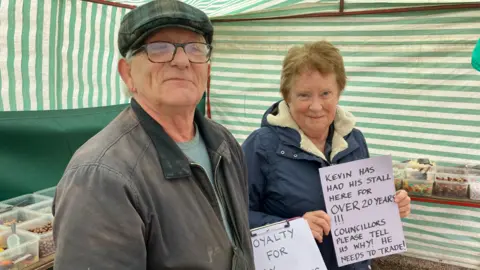 KEVIN HAS
HAD HIS STALL
HERE FOR
OVER 20 YEARS
!!!
COUNCILLORS
PLEASE TELL
US WHY? HE
NEEDS TO TRADE!
LOYALTY FOR